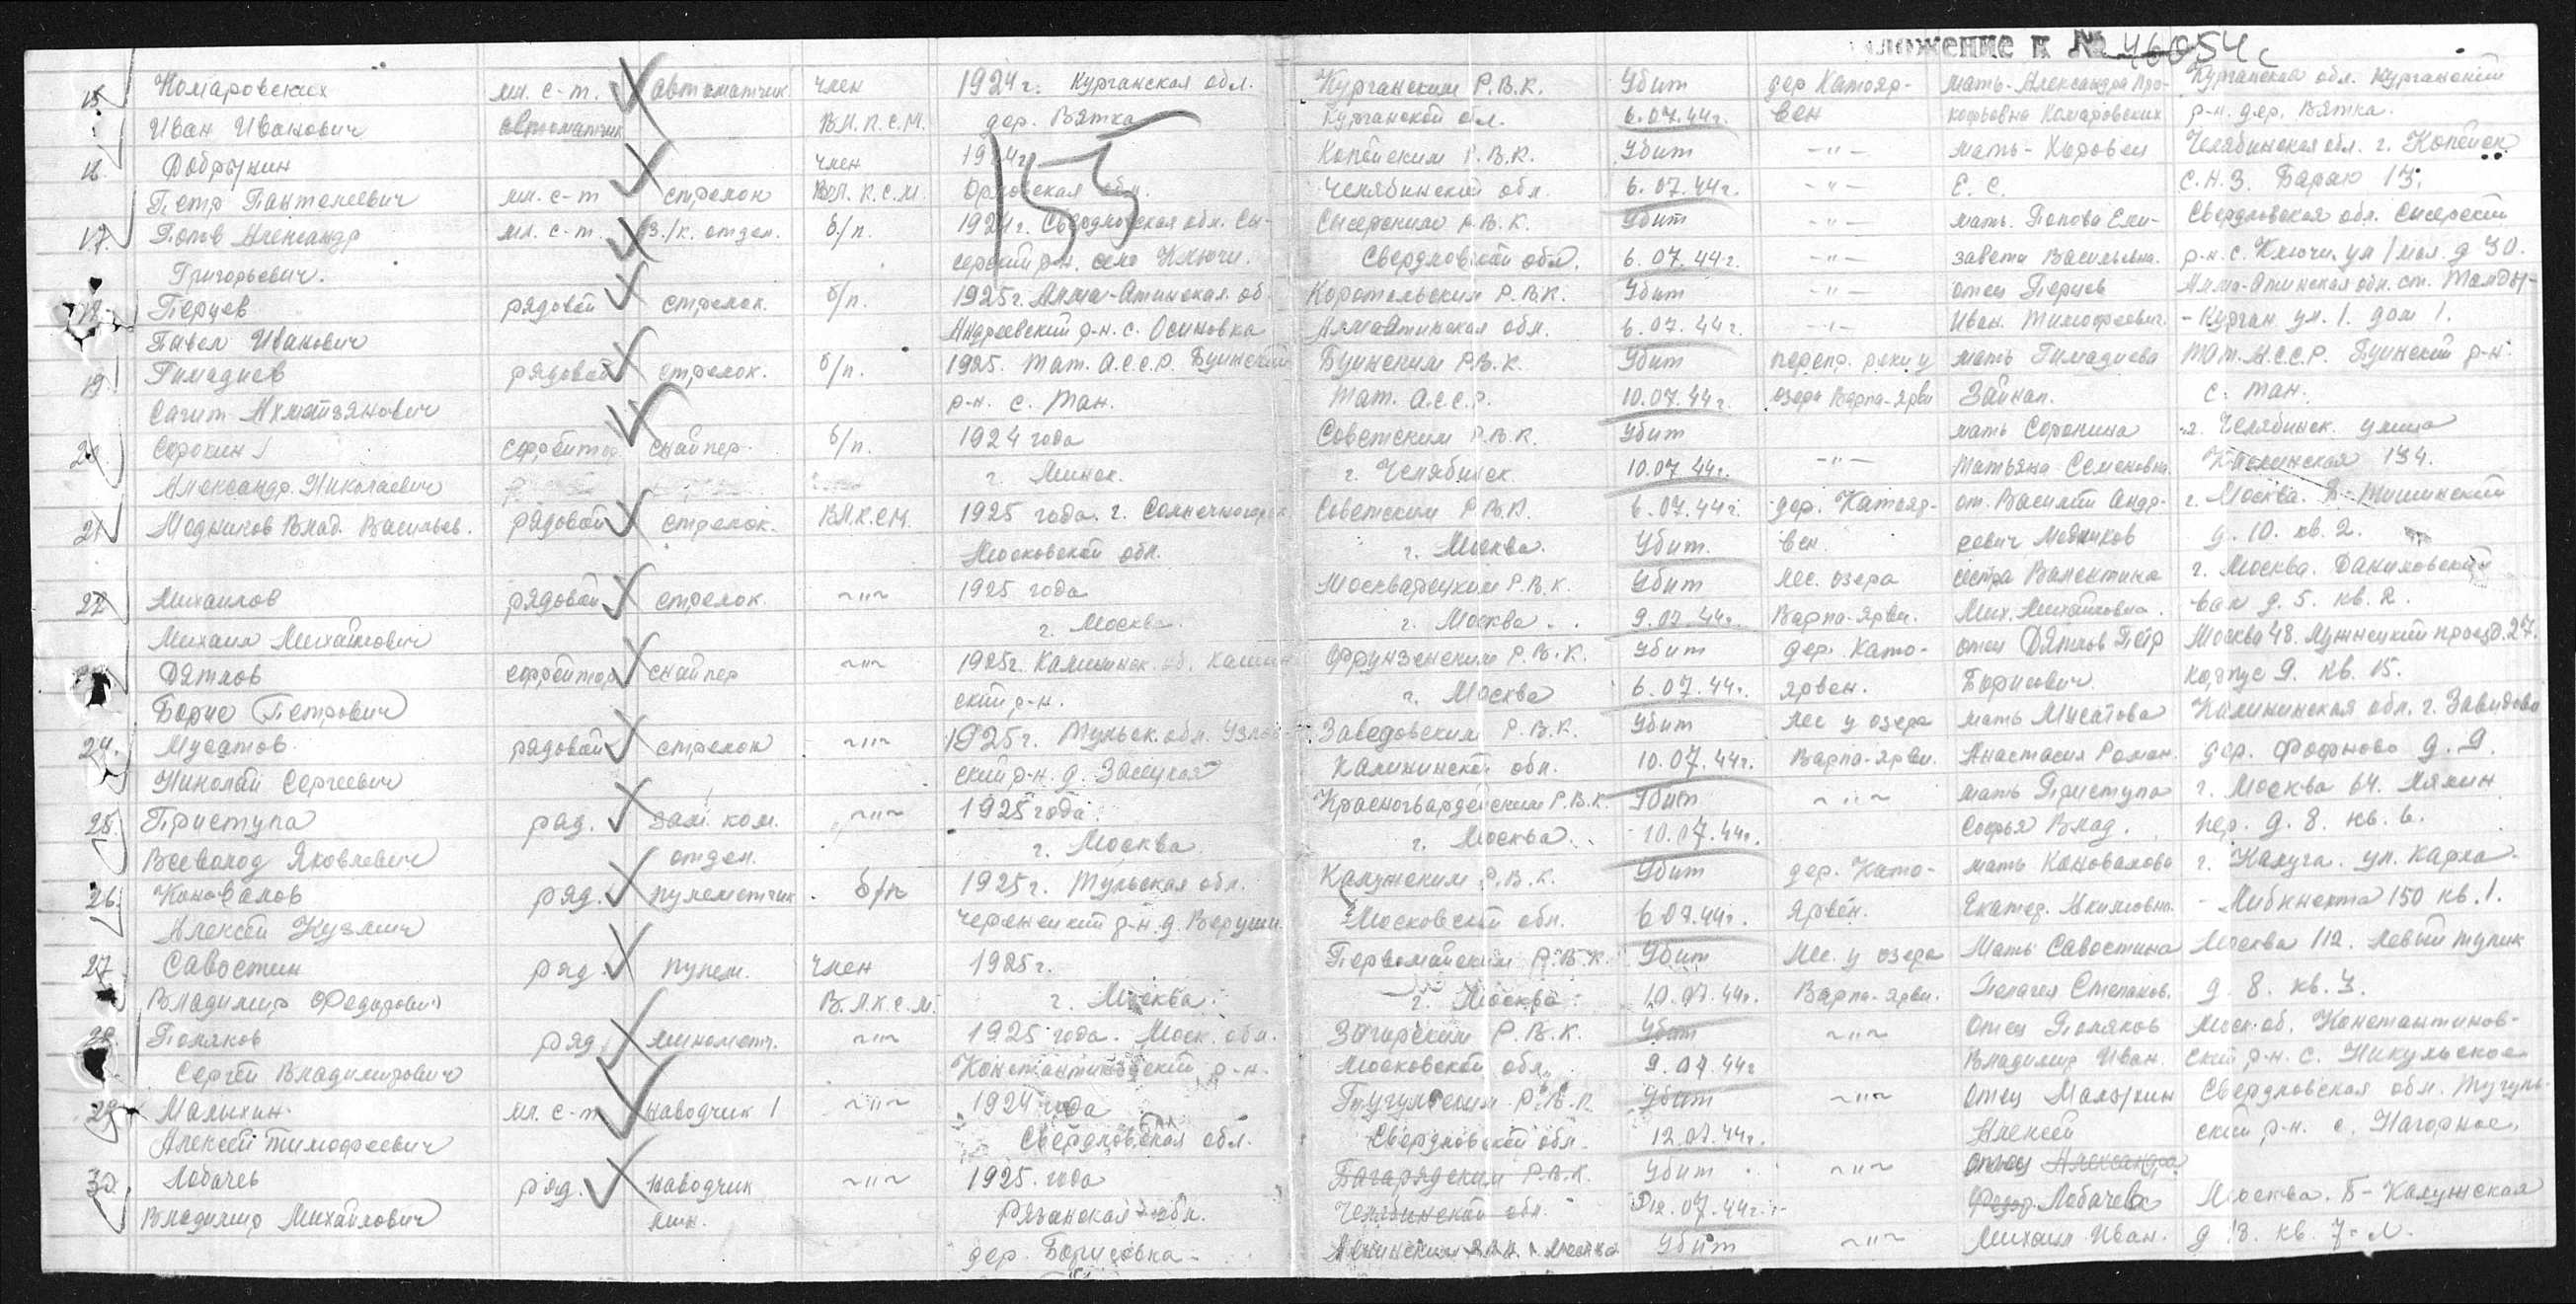 ложение к № 46054с
15 Комаровских мл. с-т. автоматчик член 1924 г. Курганская обл. Курганским Р.В.К. Убит дер Катояр- мать-Александра Про- Курганская обл. Курганский
Иван Иванович автоматчик В.Л.К.С.М. дер. Вятка Курганской ол. 6.07.44г. вен кофьевна Комаровских р-н. дер. Вятка.
16 Добрынин член 1924г Копейским Р.В.К. Убит -"- мать- Челябинская обл. г. Копейск
Петр Пантелеевич мл. с-т стрелок ВЛ.К.С.М. Орловская обл. Челябинской обл 6.07.44г. -"- Е. С. С.Н.З. Барак 13.
17. Попов Александр мл. с-т. З./к. отдел. б/п. 1924г. Свердловская обл. Сы- Сысерским Р.В.К. Убит -"- мать. Попова Ели- Свердловская обл. Сысерский
Григорьевич. серский р-н. село Ключи. Свердловской обл. 6.07.44г. -"- завета Васильевна. р-н. с. Ключи. ул 1 мая. д 30.
18. Перцев рядовой стрелок. б/п. 1925г. Алма-Атинская. об Каротальским Р.В.К. Убит -"- отец Перцев Алма-Атинская обл. ст. Талды-
Павел Иванович Андреевский р-н. с. Осиновка Алмаатинская обл. 6.07.44г. -"- Иван. Тимофеевич. -Курган ул. 1. дом 1.
19. Гимадиев рядовой стрелок. б/п. 1925. Тат. А.С.С.Р. Буинский Буинским Р.В.К. Убит перепр. реки у мать Гимадиева Тат. А.С.С.Р. Буинский р-н.
Сагит Ахматзянович р-н. с. Тан. Тат. А.С.С.Р. 10.07.44г. озера Варпа-Ярви Зайнап. с. Тан.
20 Сорокин ефрейтор снайпер. б/п. 1924 года Советским Р.В.К. Убит мать Сорокина г. Челябинск. улица
Александр Николаевич г. Минск. г. Челябинск 10.07.44г. -"- Татьяна Семеновна. 134.
21 Медников Влад. Васильев. рядовой стрелок. ВЛ.К.С.М. 1925 года. г. Солнечногорск Советским Р.В.К. 6.07.44г. дер. Катояр- от. Василий Андр- г. Москва. Б-Тишинский
Московской обл. г. Москва. Убит. вен. еевич Медников д. 10. кв. 2.
22 Михаилов рядовой стрелок. ~"~ 1925 года Москварецким Р.В.К. Убит лес. озера сестра Валентина г. Москва. Даниловский
Михаил Михайлович г. Москва. г. Москва. 9.07.44г. Варпа-Ярви. Мих. Михайловна. вал д. 5. кв. 2.
23 Дятлов ефрейтор снайпер ~"~ 1925г. Калининск. об. Калин Фрунзенским Р.В.К. Убит дер. Като- отец Дятлов Петр Москва 48. Лужнецкий проезд. 27.
Борис Петрович ский р-н. г. Москва 6.07.44г. ярвен. Борисович. корпус 9. кв. 15.
24. Мусатов рядовой стрелок ~"~ 1925г. Тульск. обл. Узлов Заведовским Р.В.К. Убит лес у озера мать Мусатова Калининская обл. г. Завидово
Николай Сергеевич ский р-н. д. Засецкая Калининской обл. 10.07.44г. Варпа-Ярви. Анастасия Роман. дер. Фофново д. 9.
25. Приступа ряд. зам. ком. ~"~ 1925 года. Красногвардейским Р.В.К. Убит ~"~ мать Приступа г. Москва 64. Лялин
Всеволод Яковлевич отдел. г. Москва г. Москва. 10.07.44г. Софья Влад. пер. д. 8. кв. 6.
26. Коновалов ряд. пулеметчик. б/п 1925г. Тульская обл. Калужским Р.В.К. Убит дер. Като- мать Коновалова г. Калуга. ул. Карла
Алексей Кузьмич Черепецкий р-н. д. Московской обл. 6.07.44г. Ярвен. Екатер. Акимовна. - Либкнехта 150 кв. 1.
27. Савостин ряд. пулем. член 1925г. Первомайским Р.В.К. Убит Лес. у озера Мать Савостина Москва 112. Левый тупик
Владимир Федорович В.Л.К.С.М. г. Москва. г. Москва. 10.07.44г. Варпа-Ярви. Пелагея Степанов. д. 8. кв. 3.
28. Поляков ряд. минометч. ~"~ 1925 года. Моск. обл. Загорским Р.В.К. Убит ~"~ Отец Поляков Моск. об. Константинов-
Сергей Владимирович Константиновский р-н. Московской обл. 9.07.44г Владимир Иван. ский р-н. с. Никульское
29. Малыхин. мл. с-т наводчик 1 ~"~ 1924 года Тугулымским Р.В.К. Убит ~"~ Отец Малыхин Свердловская обл. Тугулым-
Алексей Тимофеевич Свердловская обл. Свердловской обл. 12.07.44г. Алексей ский р-н. с. Нагорное.
30. Лобачев ряд. наводчик ~"~ 1925. года Багарядским Р.В.К. Убит ~"~ отец Александра
Владимир Михайлович мин. Рязанская обл. Челябинской обл. 12.07.44г. Федор. Лобачева Москва. Б-Калужская
дер. Борисовка Убит ~"~ Михаил Иван. д 13. кв. 7-л.
155